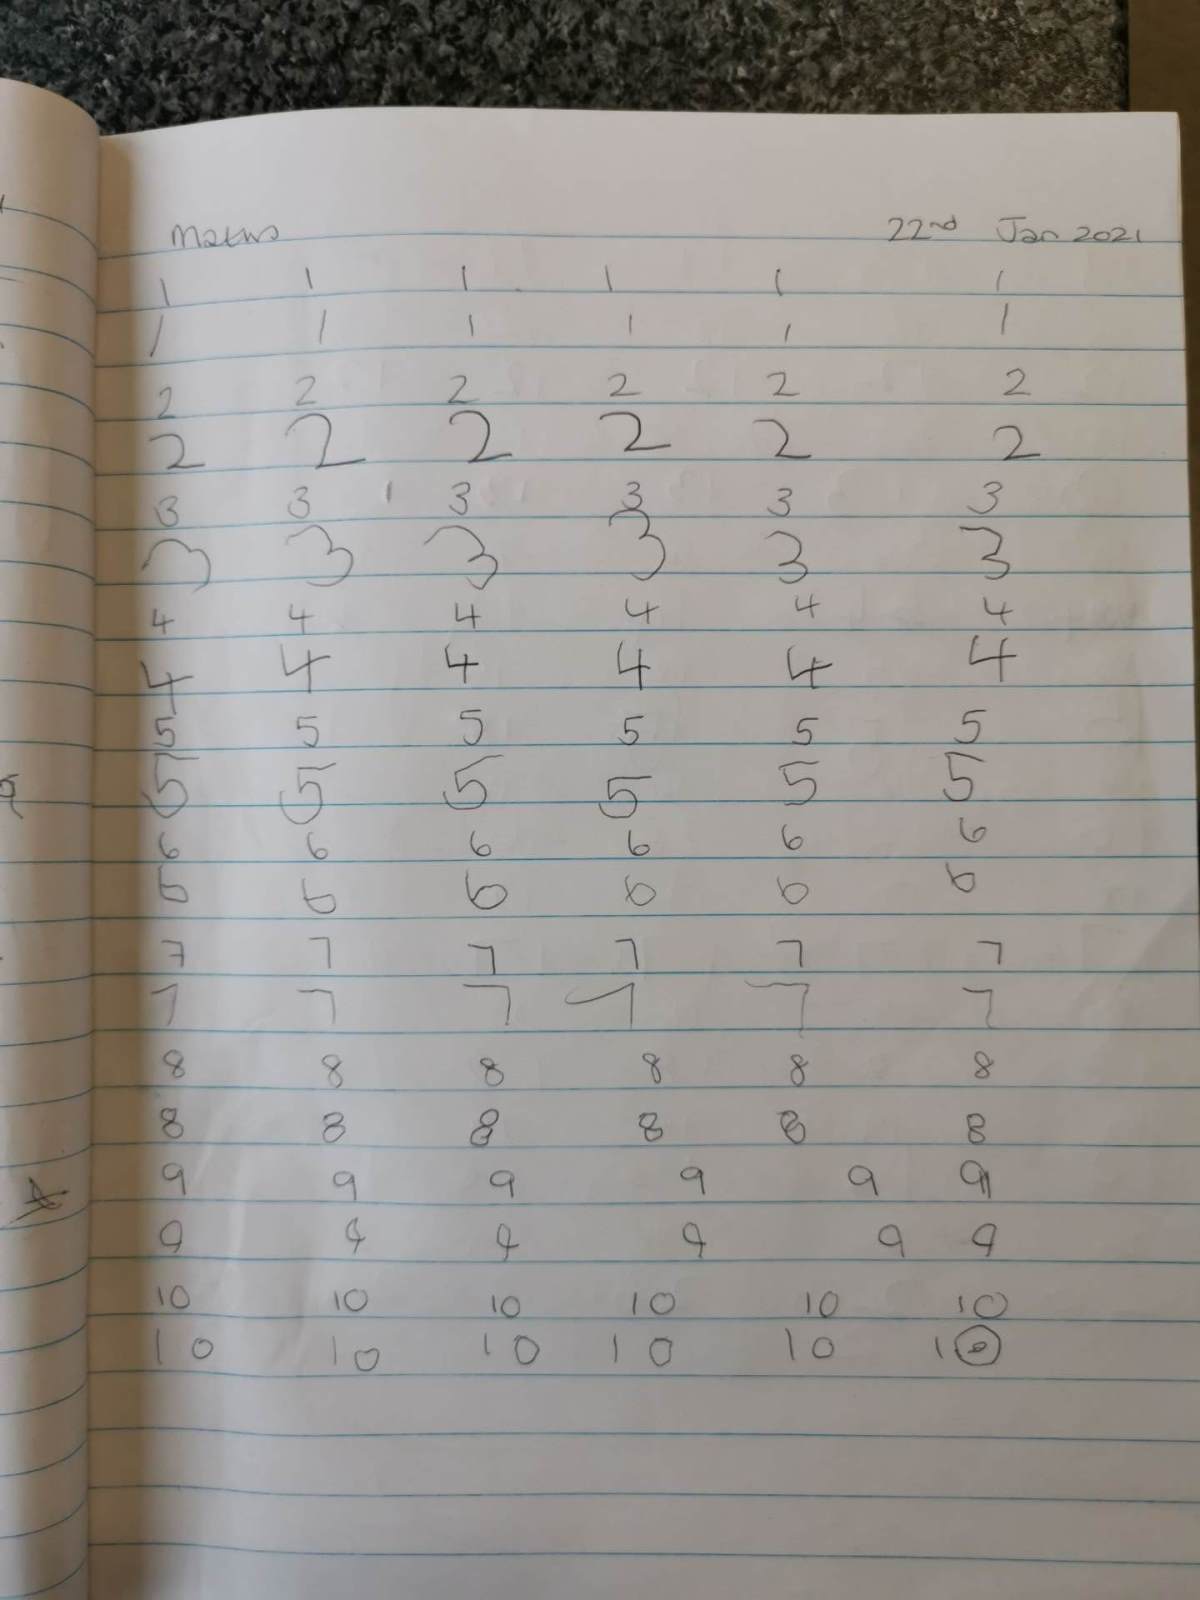 Maths 22nd Jan 2021
1 1 1 1 1 1
1 1 1 1 1 1
2 2 2 2 2 2
2 2 2 2 2 2
3 3 3 3 3 3
3 3 3 3 3 3
4 4 4 4 4 4
4 4 4 4 4 4
5 5 5 5 5 5
5 5 5 5 5 5
6 6 6 6 6 6
6 6 6 6 6 6
7 7 7 7 7 7
7 7 7 7 7 7
8 8 8 8 8 8
8 8 8 8 8 8
9 9 9 9 9 9
9 9 9 9 9 9
10 10 10 10 10 10
10 10 10 10 10 10